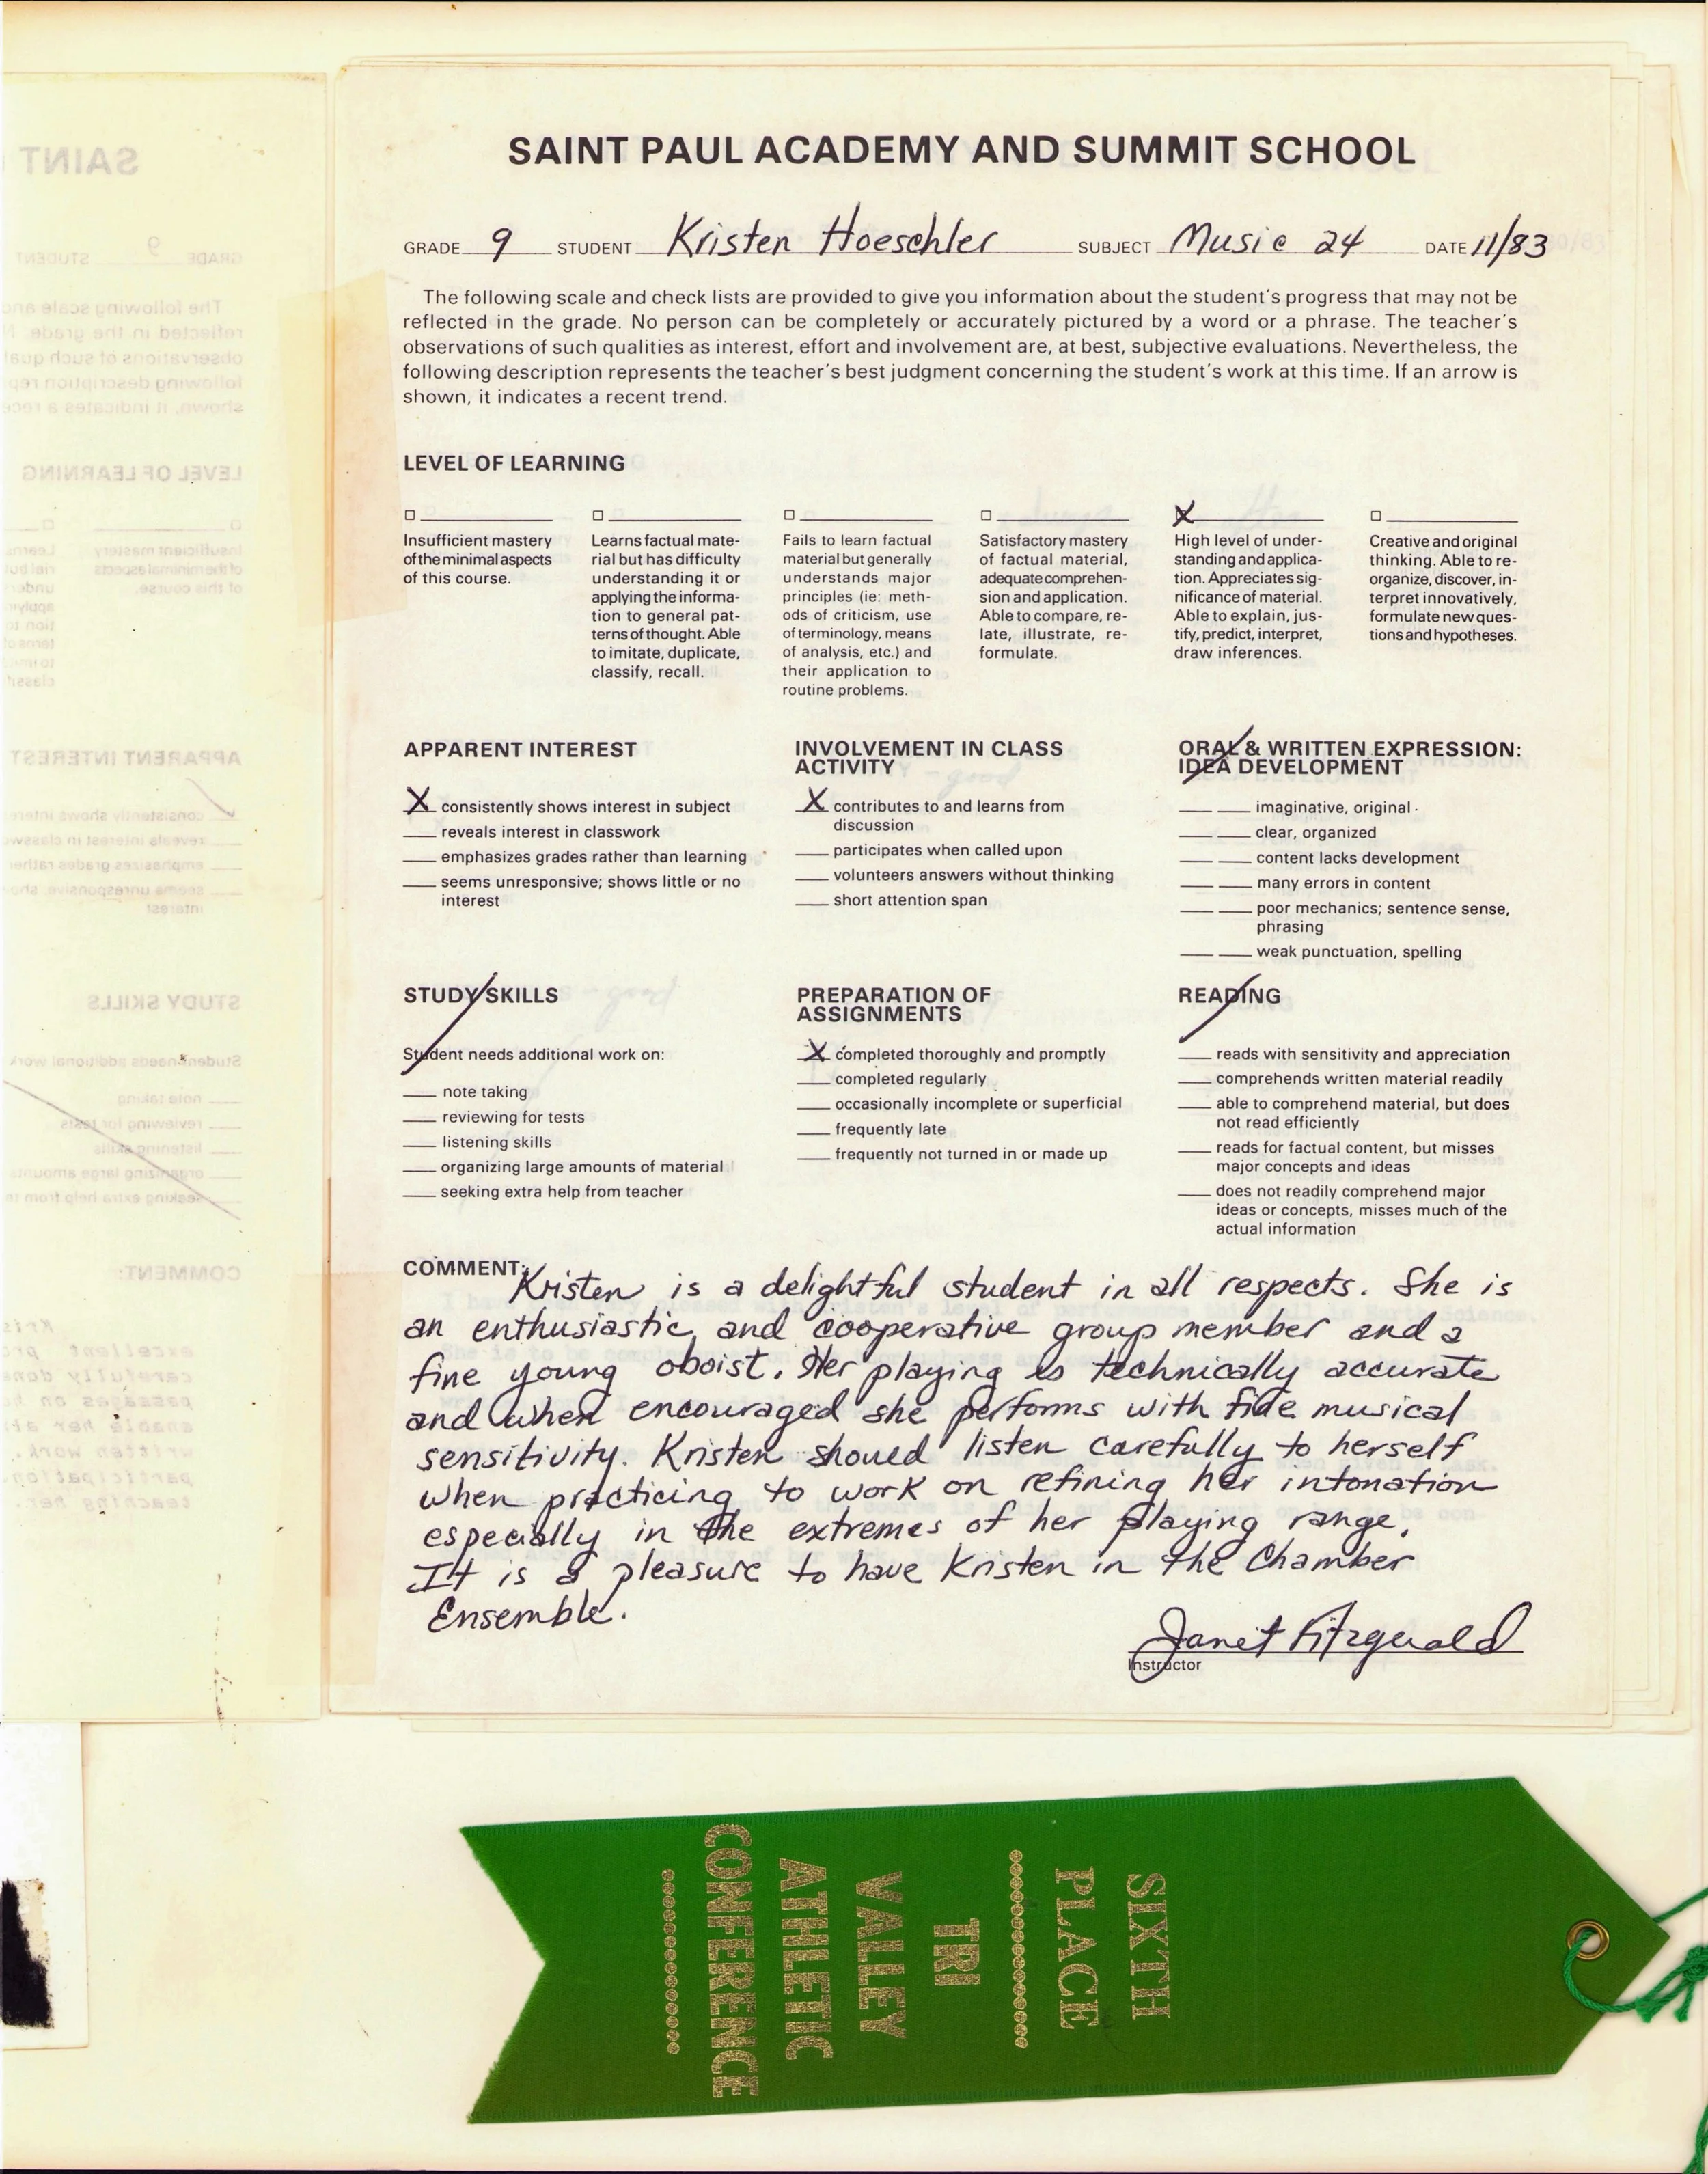 SAINT PAUL ACADEMY AND SUMMIT SCHOOL
GRADE 9 STUDENT Kristen Hoeschler SUBJECT Music 24 DATE 11/83
The following scale and check lists are provided to give you information about the student's progress that may not be
reflected in the grade. No person can be completely or accurately pictured by a word or a phrase. The teacher's
observations of such qualities as interest, effort and involvement are, at best, subjective evaluations. Nevertheless, the
following description represents the teacher's best judgment concerning the student's work at this time. If an arrow is
shown, it indicates a recent trend.
LEVEL OF LEARNING
Insufficient mastery
of the minimal aspects
of this course.
Learns factual mate-
rial but has difficulty
understanding it or
applying the informa-
tion to general pat-
terns of thought. Able
to imitate, duplicate,
classify, recall.
Fails to learn factual
material but generally
understands major
principles (ie: meth-
ods of criticism, use
of terminology, means
of analysis, etc.) and
their application to
routine problems.
Satisfactory mastery
of factual material,
adequate comprehen-
sion and application.
Able to compare, re-
late, illustrate, re-
formulate.
X
High level of under-
standing and applica-
tion. Appreciates sig-
nificance of material.
Able to explain, jus-
tify, predict, interpret,
draw inferences.
Creative and original
thinking. Able to re-
organize, discover, in-
terpret innovatively,
formulate new ques-
tions and hypotheses.
APPARENT INTEREST
X consistently shows interest in subject
reveals interest in classwork
emphasizes grades rather than learning
seems unresponsive; shows little or no
interest
INVOLVEMENT IN CLASS
ACTIVITY
X contributes to and learns from
discussion
participates when called upon
volunteers answers without thinking
short attention span
ORAL & WRITTEN EXPRESSION:
IDEA DEVELOPMENT
imaginative, original
clear, organized
content lacks development
many errors in content
poor mechanics; sentence sense,
phrasing
weak punctuation, spelling
STUDY SKILLS
Student needs additional work on:
note taking
reviewing for tests
listening skills
organizing large amounts of material
seeking extra help from teacher
PREPARATION OF
ASSIGNMENTS
X completed thoroughly and promptly
completed regularly
occasionally incomplete or superficial
frequently late
frequently not turned in or made up
READING
reads with sensitivity and appreciation
comprehends written material readily
able to comprehend material, but does
not read efficiently
reads for factual content, but misses
major concepts and ideas
does not readily comprehend major
ideas or concepts, misses much of the
actual information
COMMENT: Kristen is a delightful student in all respects. She is
an enthusiastic, and cooperative group member and a
fine young oboist. Her playing is technically accurate
and when encouraged she performs with fine musical
sensitivity. Kristen should listen carefully to herself
when practicing to work on refining her intonation
especially in the extremes of her playing range.
It is a pleasure to have Kristen in the Chamber
Ensemble.
Janet Fitzgerald
Instructor
SIXTH
PLACE
TRI
VALLEY
ATHLETIC
CONFERENCE